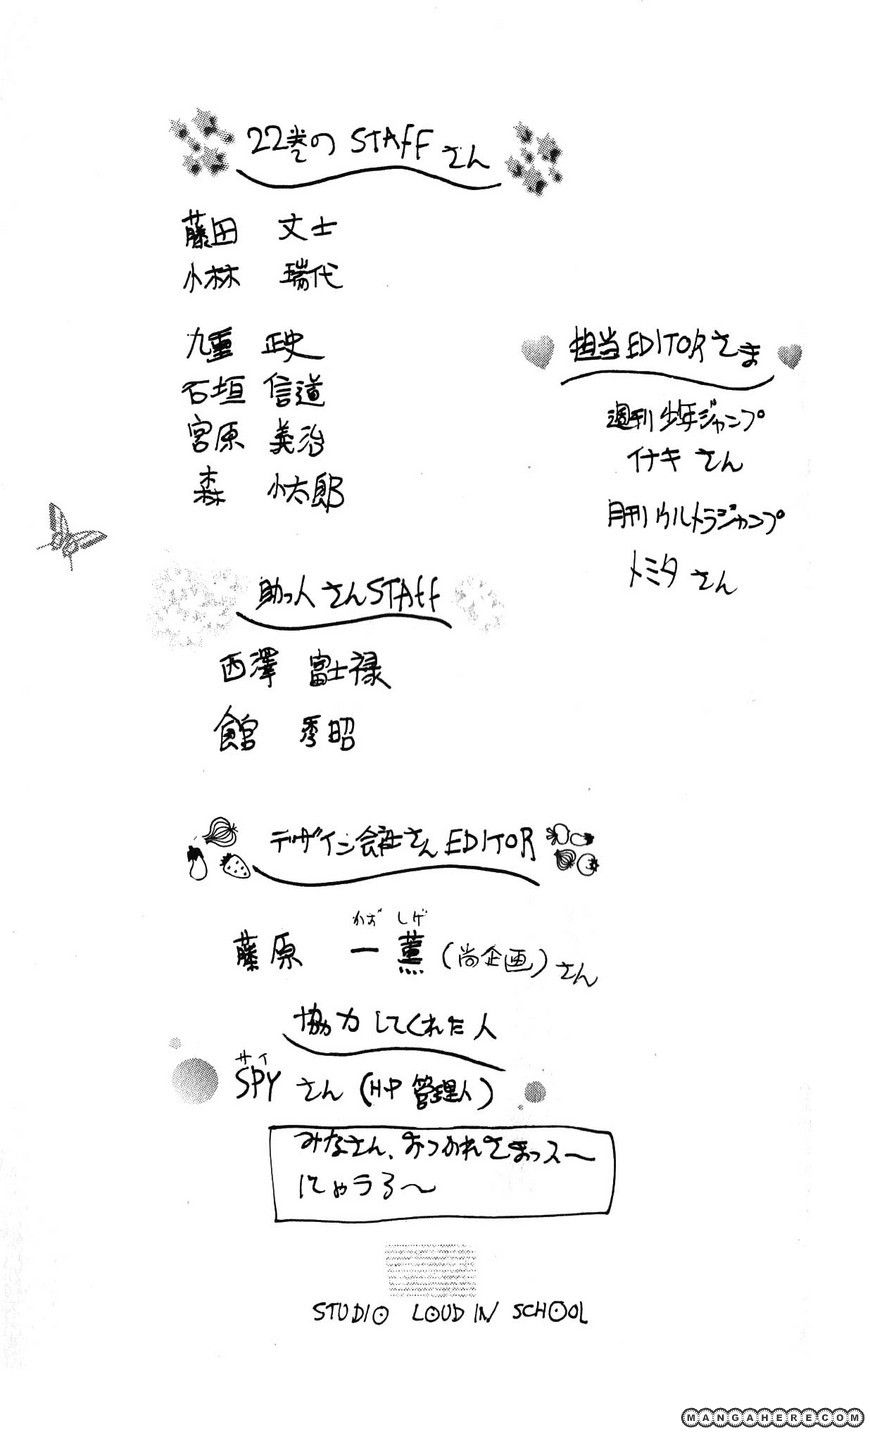 22巻の STAFF さん
藤田 丈士
小林 瑞代
九重 正史
石垣 信道
宮原 義治
森 小太郎
担当EDITORさま
週刊少年ジャンプ
イナキ さん
月刊ウルトラジャンプ
トミタ さん
助っ人 さんSTAFF
西澤 富士禄
館 秀昭
デザイン会社さんEDITOR
かず しげ
藤原 一薫(尚企画)さん
協力 してくれた人
サイ
SPY さん (HP 管理人)
みなさん、おつかれさまっス〜
にゃうる〜
STUDIO LOUD IN SCHOOL
MANGAHERE.COM